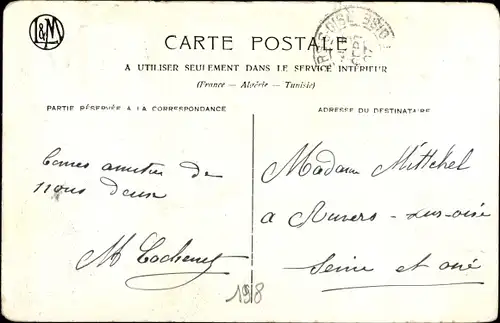 L&M
CARTE POSTALE
A UTILISER SEULEMENT DANS LE SERVICE INTÉRIEUR
(France — Algérie — Tunisie)
PARTIE RÉSERVÉE A LA CORRESPONDANCE
ADRESSE DU DESTINATAIRE
bonnes amitiés de
nous deux
M
Madame Mittchel
a Auvers - sur-oise
Seine et oise
1918